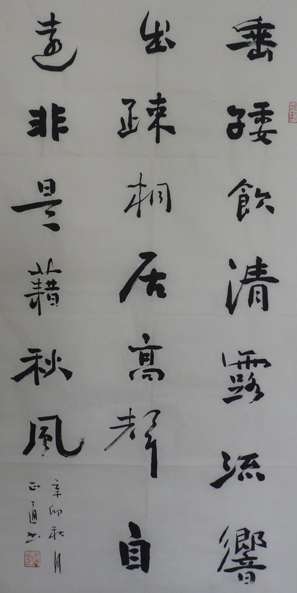 垂緌飲清露流響
出疎桐居高聲自
遠非是藉秋風
辛卯秋月
正书